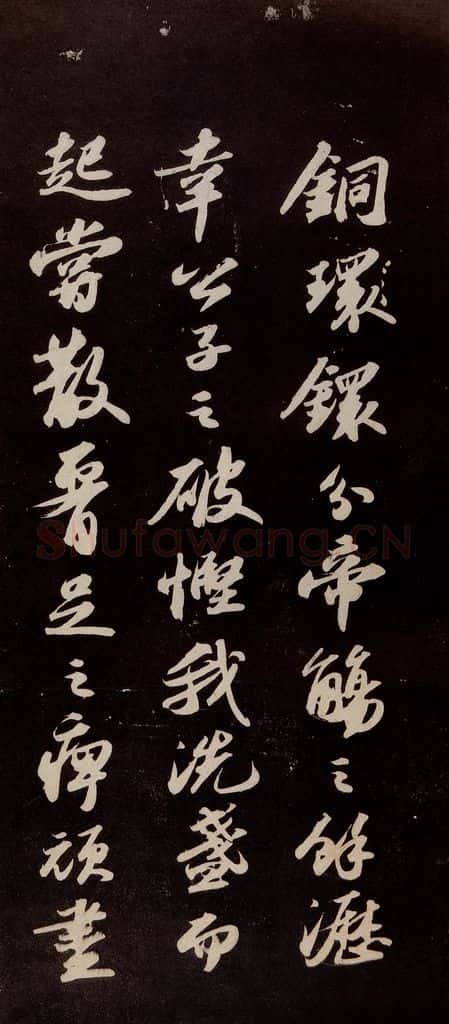 銅環鐶分帝觴之餘瀝
幸公子之破慳我洗盞而
起嘗散腰足之痺頑盡
Shufawang.CN